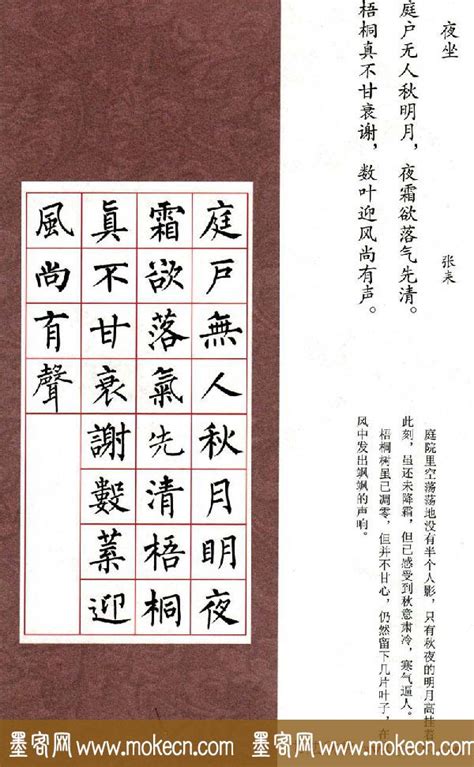 夜坐
张耒
庭户无人秋明月，夜霜欲落气先清。
梧桐真不甘衰谢，数叶迎风尚有声。
庭院里空荡荡地没有半个人影，只有秋夜的明月高挂着
此刻，虽还未降霜，但已感受到秋意肃冷，寒气逼人。
梧桐树虽已凋零，但并不甘心，仍然留下几片叶子，在
风中发出飒飒的声响。
庭戶無人秋月明夜
霜欲落氣先清梧桐
眞不甘衰謝數葉迎
風尚有聲
墨客网 www.mokecn.com 墨客网 www.mokecn.com